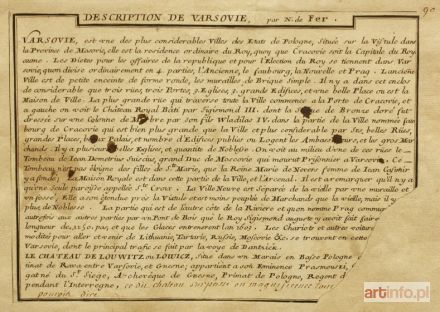 90
DESCRIPTION DE VARSOVIE, par N. de Fer.
VARSOVIE, est vne des plus considerables Villes des Etats de Pologne, Située sur la Vistule dans
la Province de Masovie, elle est la residence ordinaire du Roy, quoy que Cracovie soit la Capitale du Roy
aume. Les Dietes pour les affaires de la republique et pour l'Election du Roy se tiennent dans Var
sovie, quon divise ordinairement en 4. parties, l'Ancienne, le fauxbourg, la Nouvelle et Prag. L'anciéne
Ville est de petite enceinte de forme ronde, les murailles de Brique Simple. Il n'y a dans cet enclos
de considerable que trois rües, trois Portes, 3 Eglises, 3 grands Edifices, et vne belle Place ou est la
Maison de Ville. La plus grande rüe qui traverse toute la Ville commence a la Porte de Cracovie, et
a gauche on voit le Château Royal Bâti par Sigismond III. dont la de Bronze doré fut
dressée sur vne Colonne de par son fils Wladilas IV. dans la partie de la Ville nommée faux
bourg de Cracovie qui est bien plus grande que la Ville et plus considerable par Ses belles Rües,
grandes Places, beaux Palais, et nombre d'Edifices publics ou Logent les Ambas et les gros Mar
chands. Il y a plusieurs Eglises, et quantité de Noblesse. On voit au milieu d'une de ces rües le
Tombeau de Jean Demetrius Suiscius, grand Duc de Moscovie qui mourut Prisonnier a Varsovie. Ce
Tombeau n'est pas éloigné des filles de Ste. Marie, que la Reine Marie de Nevers femme de Jean Casimir
y a fondé. La Maison Royale est dans cette partie de la Ville, et l'Arcenal. Il est a remarquer qu'il n'y a
qu'une Seule paroisse appellée Ste. Croix. La Ville Neuve est Separée de la vieille par vne muraille et
vn fossé, Elle a S'étendre près la Vistule et est moins peuplée de Marchands que la vieille, mais il y
plus de Noblesse. La partie qui est de l'autre côté de la Riviere et quon nomme Prag commun
autrefois aux autres parties par vn Pont de Bois que le Roy Sigismond auguste y avoit fait faire
longueur de 1150. pas, et que les Glaces entrenerent l'an 1603. Les Chariots et autres voiture
modité pour aller et venir de Lithuanie, Tartarie, Russie, Moscovie &c. se trouvent en cette
Varsovie, dont le principal trafic se fait par la voye de Dantzick.
LE CHATEAU DE LOUWITZ OU LOWICZ, Situé dans vn Marais en Basse Pologne
tinat de Rava entre Varsovie, et Gnesne, appartient a son Eminence Prasmouski,
gat né du St. Siege, Archevêque de Gnesne, Primat de Pologne, Regent d
pendant l'Interregne, ce dit château surpasse en magnificence tout
pouvoir dire.
artinfo.pl